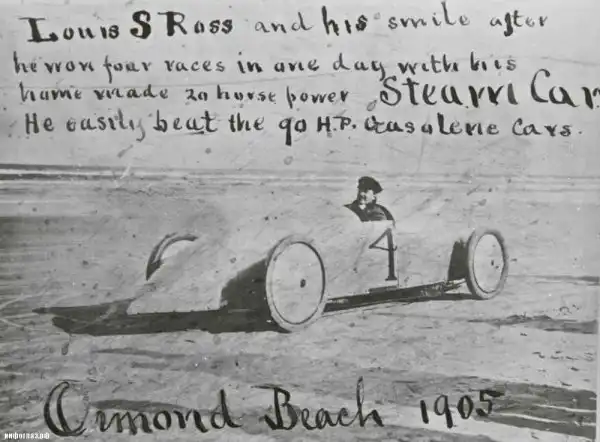 Louis S Ross and his smile after
he won four races in one day with his
home made 20 horse power Steam Car
He easily beat the 90 H.P. Gasolene Cars.
4
Ormond Beach 1905
инфоглаз.рф